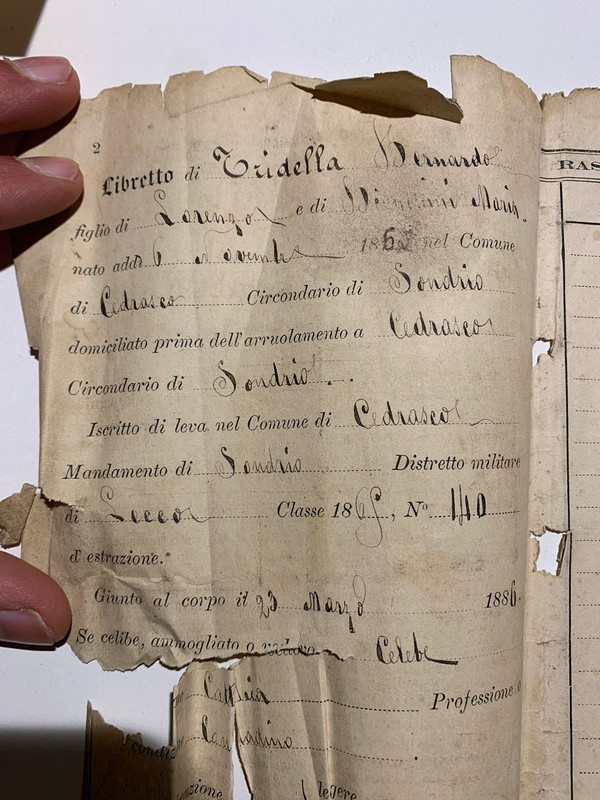 2
Libretto di Tridella Bernardo
figlio di Lorenzo e di Maria
nato addì 6 Novembre 1865 nel Comune
di Cedrasco Circondario di Sondrio
domiciliato prima dell'arruolamento a Cedrasco
Circondario di Sondrio
Iscritto di leva nel Comune di Cedrasco
Mandamento di Sondrio Distretto militare
di Lecco Classe 1865, Nº 140
d'estrazione.
Giunto al corpo il 23 Marzo 1886
Se celibe, ammogliato o vedovo Celibe
Professione o
condiz
Contadino
leggere
RAS